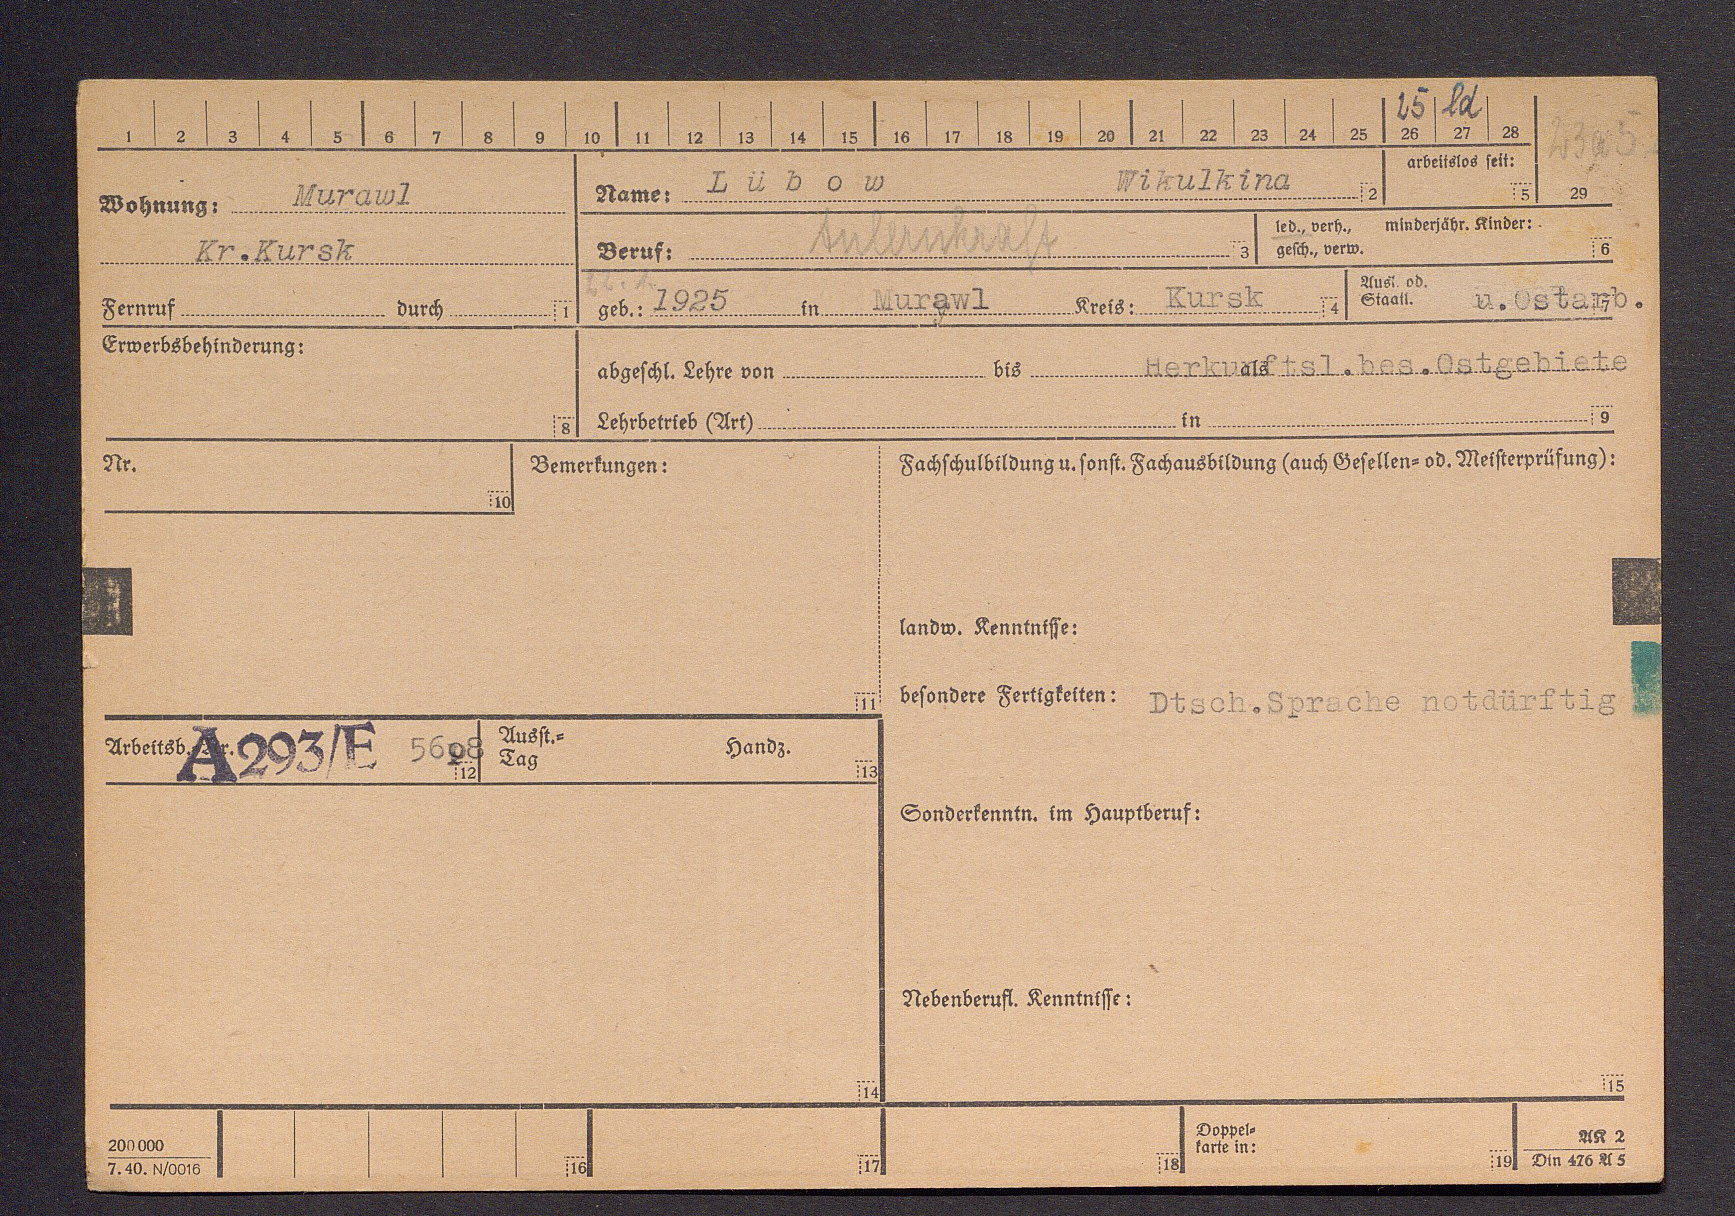 25 ld
1 2 3 4 5 6 7 8 9 10 11 12 13 14 15 16 17 18 19 20 21 22 23 24 25 26 27 28
arbeitslos seit:
5 29
Wohnung: Murawl
Kr.Kursk
Fernruf durch 1
Name: Lübow Wikulkina 2
Beruf: Anlernkraft 3
led., verh., minderjähr. Kinder:
gesch., verw. 6
geb.: 1925 in Murawl Kreis: Kursk 4
Ausl. od.
Staatl. u.Ostarb. 7
Erwerbsbehinderung:
8
abgeschl. Lehre von bis als Herkunftsl.bes.Ostgebiete
Lehrbetrieb (Art) in 9
Nr.
10
Bemerkungen:
11
Fachschulbildung u. sonst. Fachausbildung (auch Gesellen= od. Meisterprüfung):
landw. Kenntnisse:
besondere Fertigkeiten: Dtsch.Sprache notdürftig
Arbeitsb.-Nr. A293/E 12
Ausst.=
Tag Handz. 13
Sonderkenntn. im Hauptberuf:
Nebenberufl. Kenntnisse:
14
15
200000
7. 40. N/0016
16
17
18
Doppel=
karte in:
19
AK 2
Din 476 A 5